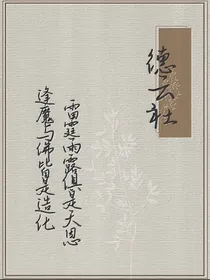 德云社
雷霆雨露俱是天恩
逢魔与佛皆是造化